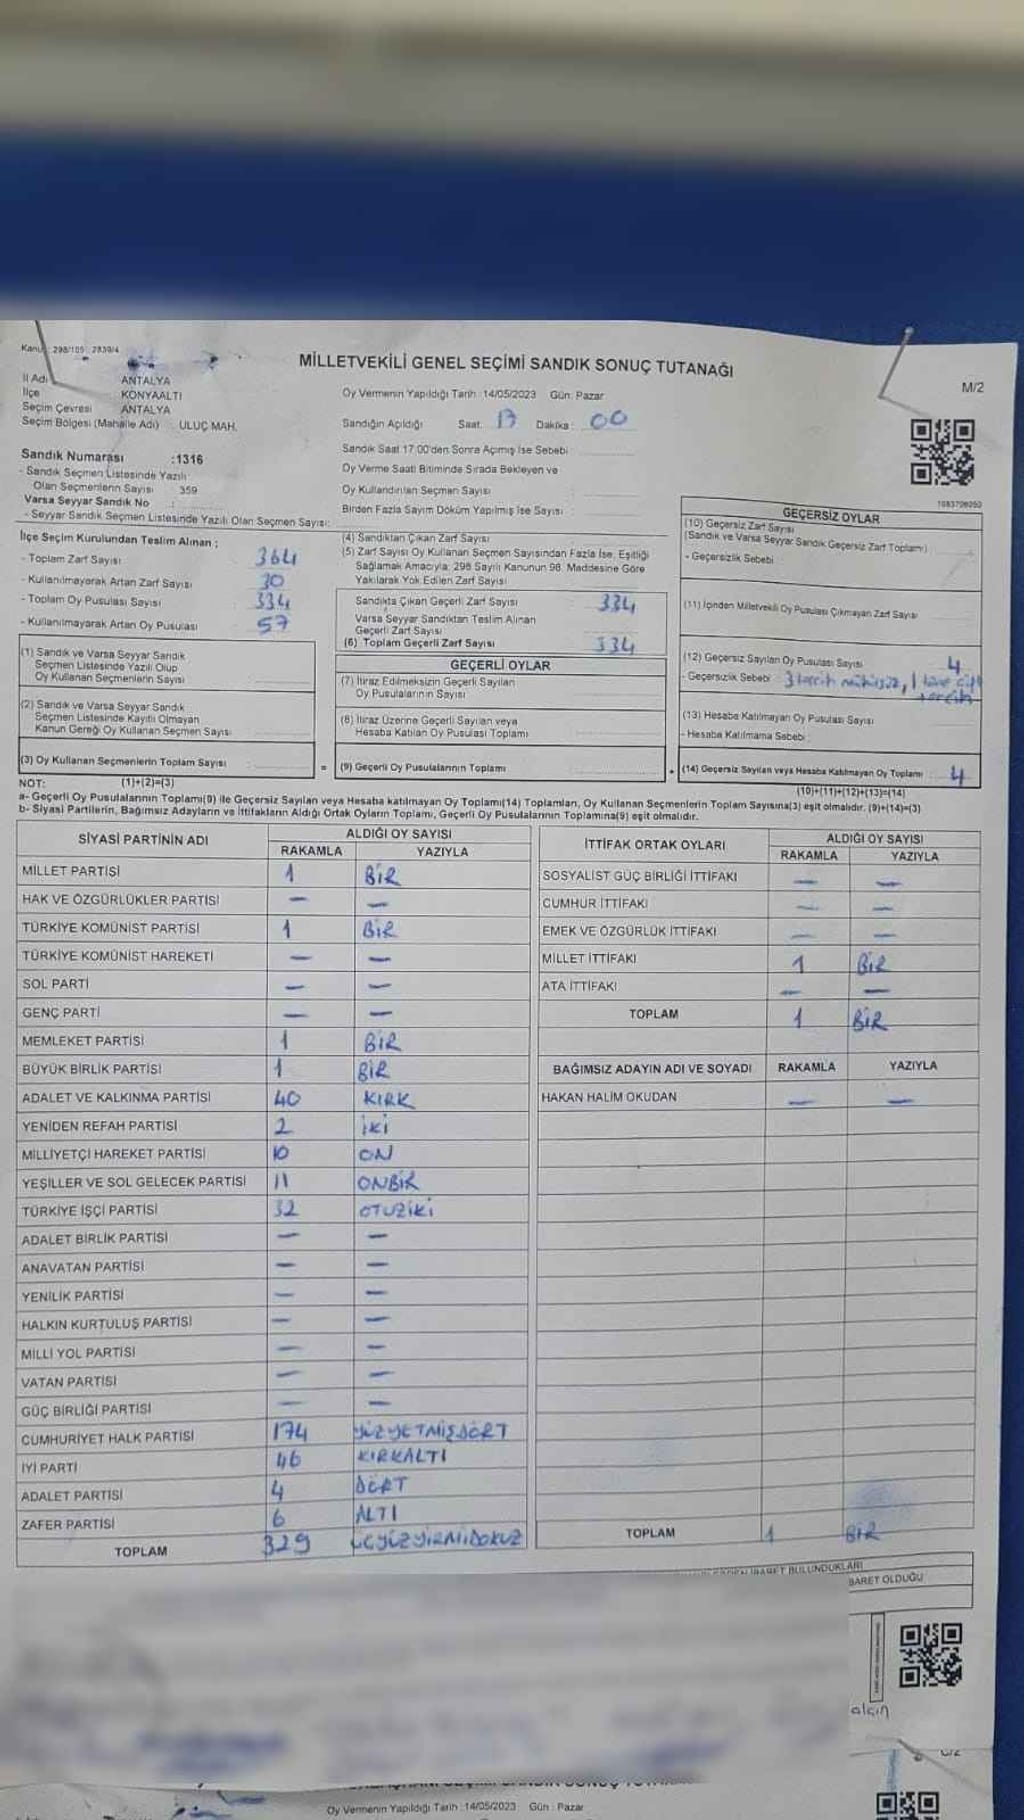 Kanun: 298/105 2839/4
MİLLETVEKİLİ GENEL SEÇİMİ SANDIK SONUÇ TUTANAĞI
M/2
İl Adı ANTALYA
İlçe KONYAALTI
Seçim Çevresi ANTALYA
Seçim Bölgesi (Mahalle Adı) : ULUÇ MAH.
Oy Vermenin Yapıldığı Tarih :14/05/2023 Gün: Pazar
Sandığın Açıldığı Saat: 17 Dakika: 00
Sandık Saat 17:00'den Sonra Açımış İse Sebebi
Oy Verme Saati Bitiminde Sırada Bekleyen ve
Oy Kullandırılan Seçmen Sayısı
Birden Fazla Sayım Döküm Yapılmış İse Sayısı :
Sandık Numarası :1316
- Sandık Seçmen Listesinde Yazılı
Olan Seçmenlerin Sayısı 359
Varsa Seyyar Sandık No :
- Seyyar Sandık Seçmen Listesinde Yazılı Olan Seçmen Sayısı:
İlçe Seçim Kurulundan Teslim Alınan ;
- Toplam Zarf Sayısı 364
- Kullanılmayarak Artan Zarf Sayısı 30
- Toplam Oy Pusulası Sayısı 334
- Kullanılmayarak Artan Oy Pusulası 57
(1) Sandık ve Varsa Seyyar Sandık
Seçmen Listesinde Yazılı Olup
Oy Kullanan Seçmenlerin Sayısı
(2) Sandık ve Varsa Seyyar Sandık
Seçmen Listesinde Kayıtlı Olmayan
Kanun Gereği Oy Kullanan Seçmen Sayısı
(3) Oy Kullanan Seçmenlerin Toplam Sayısı :
(4) Sandıktan Çıkan Zarf Sayısı
(5) Zarf Sayısı Oy Kullanan Seçmen Sayısından Fazla İse, Eşitliği
Sağlamak Amacıyla; 298 Sayılı Kanunun 98. Maddesine Göre
Yakılarak Yok Edilen Zarf Sayısı
Sandıkta Çıkan Geçerli Zarf Sayısı 334
Varsa Seyyar Sandıktan Teslim Alınan
Geçerli Zarf Sayısı
(6) Toplam Geçerli Zarf Sayısı 334
GEÇERLİ OYLAR
(7) İtiraz Edilmeksizin Geçerli Sayılan
Oy Pusulalarının Sayısı
(8) İtiraz Üzerine Geçerli Sayılan veya
Hesaba Katılan Oy Pusulası Toplamı
= (9) Geçerli Oy Pusulalarının Toplamı
1083706050
GEÇERSİZ OYLAR
(10) Geçersiz Zarf Sayısı
(Sandık ve Varsa Seyyar Sandık Geçersiz Zarf Toplamı)
- Geçersizlik Sebebi
(11) İçinden Milletvekili Oy Pusulası Çıkmayan Zarf Sayısı
(12) Geçersiz Sayılan Oy Pusulası Sayısı 4
- Geçersizlik Sebebi : 3 tercih mühürsüz, 1 tane çift
tercih
(13) Hesaba Katılmayan Oy Pusulası Sayısı
- Hesaba Katılmama Sebebi :
+ (14) Geçersiz Sayılan veya Hesaba Katılmayan Oy Toplamı : 4
NOT: (1)+(2)=(3)
(10)+(11)+(12)+(13)=(14)
a- Geçerli Oy Pusulalarının Toplamı(9) ile Geçersiz Sayılan veya Hesaba katılmayan Oy Toplamı(14) Toplamları, Oy Kullanan Seçmenlerin Toplam Sayısına(3) eşit olmalıdır. (9)+(14)=(3)
b- Siyasi Partilerin, Bağımsız Adayların ve İttifakların Aldığı Ortak Oyların Toplamı, Geçerli Oy Pusulalarının Toplamına(9) eşit olmalıdır.
SİYASİ PARTİNİN ADI ALDIĞI OY SAYISI
RAKAMLA YAZIYLA
MİLLET PARTİSİ 1 BİR
HAK VE ÖZGÜRLÜKLER PARTİSİ — —
TÜRKİYE KOMÜNİST PARTİSİ 1 BİR
TÜRKİYE KOMÜNİST HAREKETİ — —
SOL PARTİ — —
GENÇ PARTİ — —
MEMLEKET PARTİSİ 1 BİR
BÜYÜK BİRLİK PARTİSİ 1 BİR
ADALET VE KALKINMA PARTİSİ 40 KIRK
YENİDEN REFAH PARTİSİ 2 İKİ
MİLLİYETÇİ HAREKET PARTİSİ 10 ON
YEŞİLLER VE SOL GELECEK PARTİSİ 11 ONBİR
TÜRKİYE İŞÇİ PARTİSİ 32 OTUZİKİ
ADALET BİRLİK PARTİSİ — —
ANAVATAN PARTİSİ — —
YENİLİK PARTİSİ — —
HALKIN KURTULUŞ PARTİSİ — —
MİLLİ YOL PARTİSİ — —
VATAN PARTİSİ — —
GÜÇ BİRLİĞİ PARTİSİ — —
CUMHURİYET HALK PARTİSİ 174 YÜZYETMİŞDÖRT
İYİ PARTİ 46 KIRKALTI
ADALET PARTİSİ 4 DÖRT
ZAFER PARTİSİ 6 ALTI
TOPLAM 329 ÜÇYÜZYİRMİDOKUZ
İTTİFAK ORTAK OYLARI ALDIĞI OY SAYISI
RAKAMLA YAZIYLA
SOSYALİST GÜÇ BİRLİĞİ İTTİFAKI — —
CUMHUR İTTİFAKI — —
EMEK VE ÖZGÜRLÜK İTTİFAKI — —
MİLLET İTTİFAKI 1 BİR
ATA İTTİFAKI — —
TOPLAM 1 BİR
BAĞIMSIZ ADAYIN ADI VE SOYADI RAKAMLA YAZIYLA
HAKAN HALİM OKUDAN — —
TOPLAM 1 BİR
İBARET BULUNDUKLARI
BARET OLDUĞU
alçın
Oy Vermenin Yapıldığı Tarih :14/05/2023 Gün : Pazar